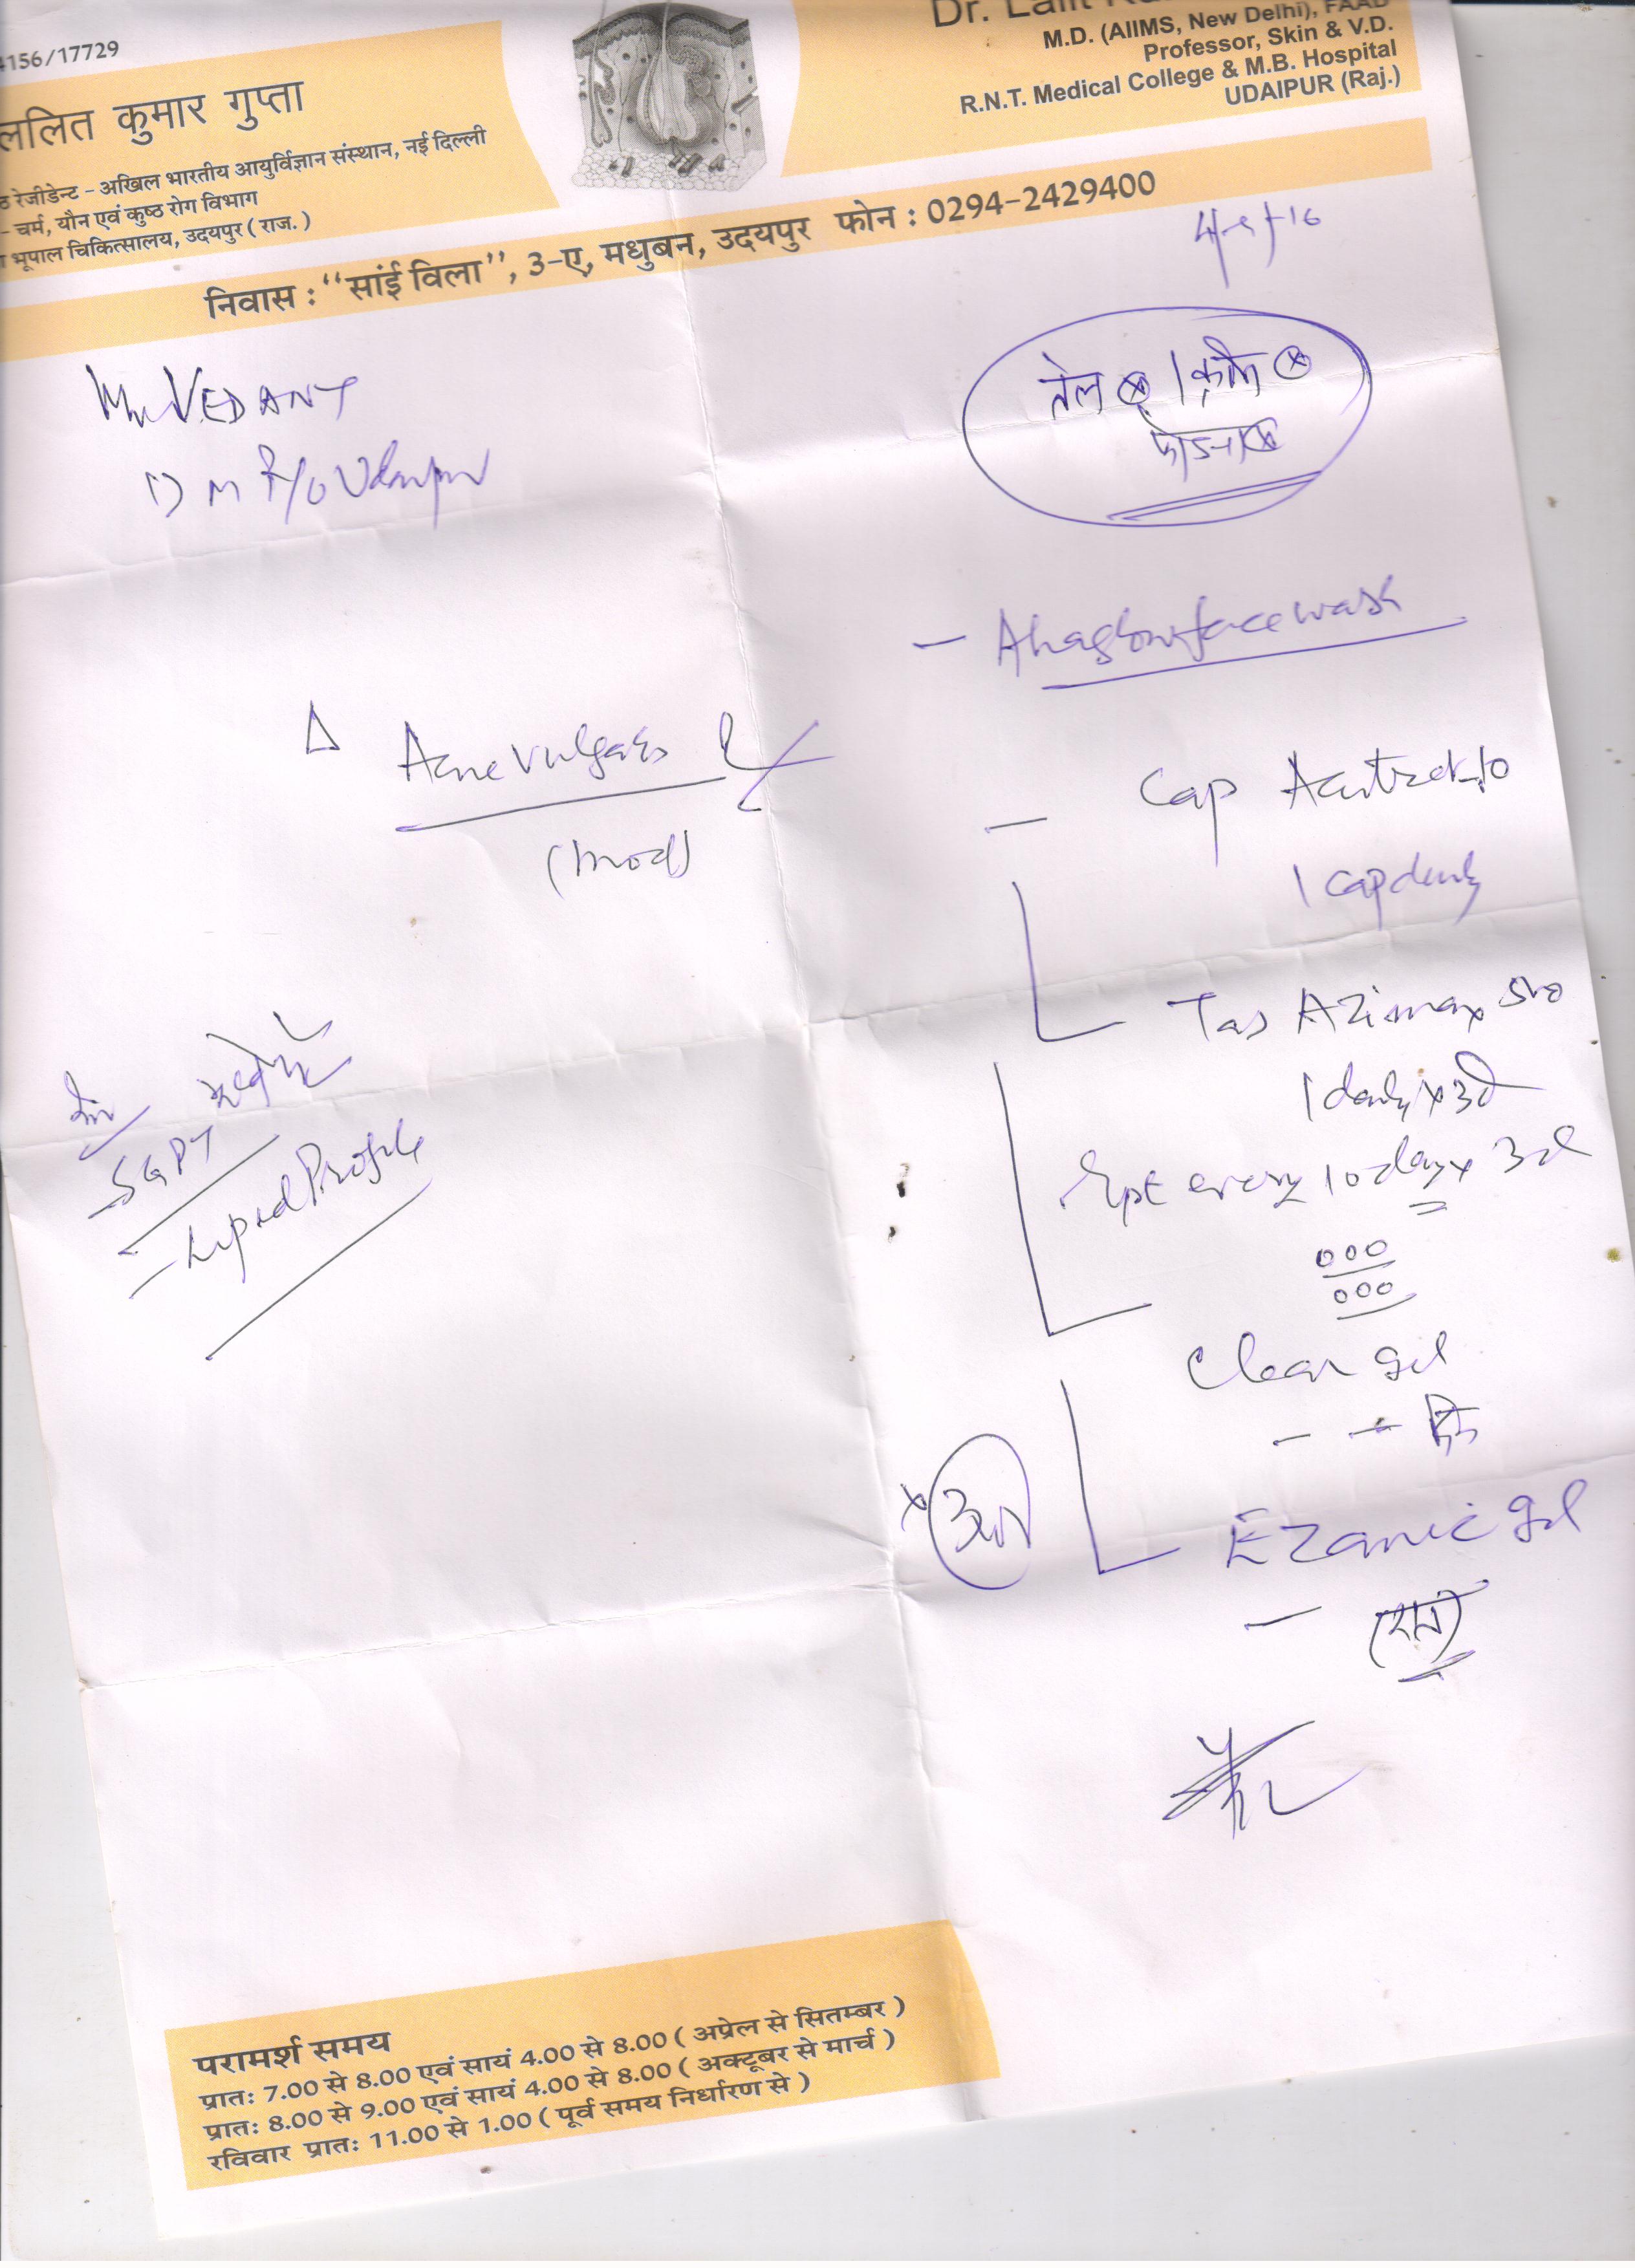 4156/17729
ललित कुमार गुप्ता
ठ रेजीडेन्ट – अखिल भारतीय आयुर्विज्ञान संस्थान, नई दिल्ली
- चर्म, यौन एवं कुष्ठ रोग विभाग
भूपाल चिकित्सालय, उदयपुर ( राज. )
Dr. Lalit
M.D. (AIIMS, New Delhi), FAAD
Professor, Skin & V.D.
R.N.T. Medical College & M.B. Hospital
UDAIPUR (Raj.)
निवास : ‘‘सांई विला’’, 3-ए, मधुबन, उदयपुर फोन : 0294-2429400
Mr VEDANT
M R/o Udaipur
तेल ⊗ / क्रीम ⊗
फोडना ⊗
- Ahaglow face wash
Δ Acne vulgaris
(mod)
- Cap Acutret-10
1 cap daily
Tab Azimax 500
1 daily x 3d
Rpt every 10 days x 3d
000
000
SGPT
- Lipid Profile
Clear gel
Ezanic gel
- (रात)
परामर्श समय
प्रातः 7.00 से 8.00 एवं सायं 4.00 से 8.00 ( अप्रेल से सितम्बर )
प्रातः 8.00 से 9.00 एवं सायं 4.00 से 8.00 ( अक्टूबर से मार्च )
रविवार प्रातः 11.00 से 1.00 ( पूर्व समय निर्धारण से )